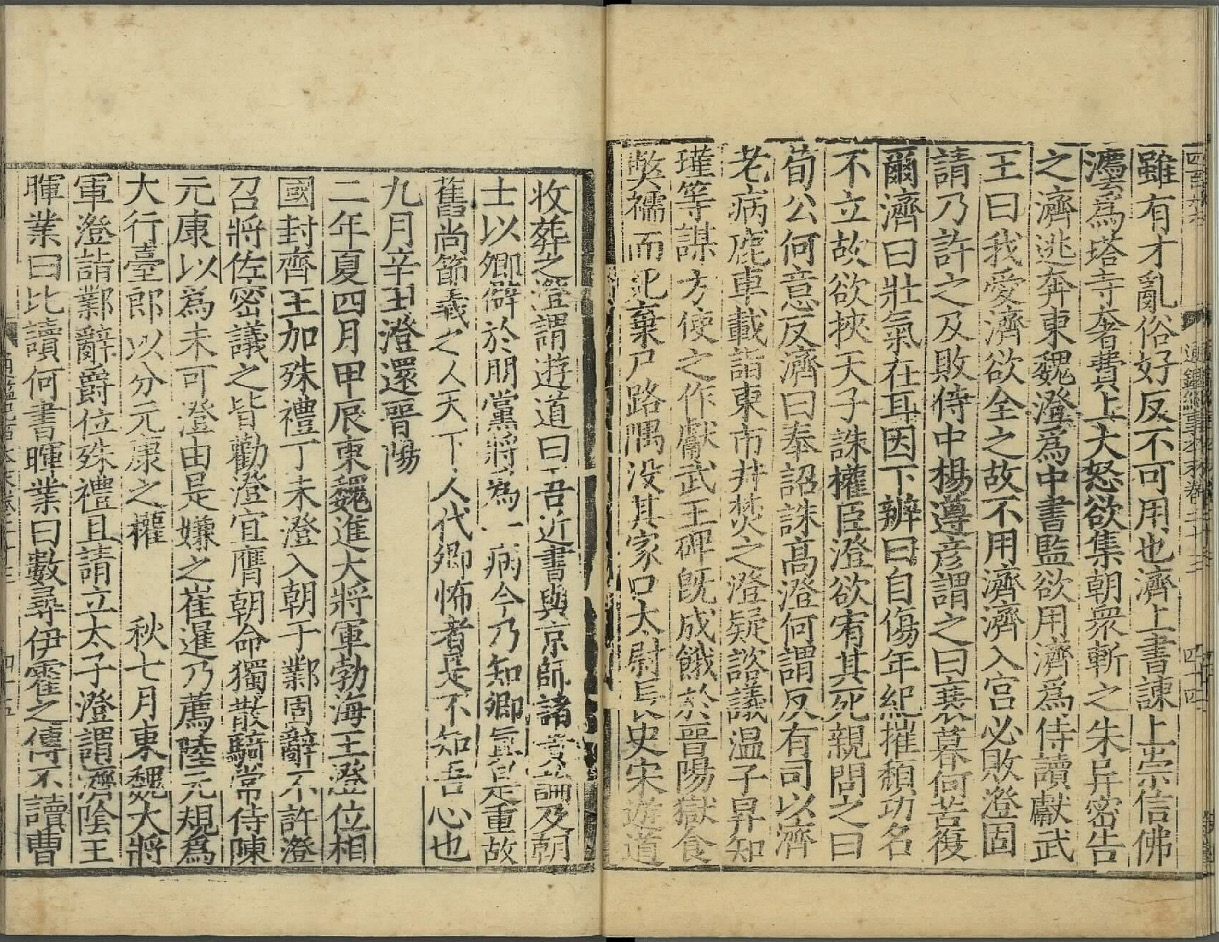 雖有才亂俗好反不可用也濟上書諫上崇信佛
灋為塔寺奢費上大怒欲集朝衆斬之朱异密告
之濟逃奔東魏澄為中書監欲用濟為侍讀獻武
王曰我愛濟欲全之故不用濟濟入宮必敗澄固
請乃許之及敗侍中楊遵彥謂之曰衰暮何苦復
爾濟曰壯氣在耳因下辨曰自傷年紀摧頹功名
不立故欲挾天子誅權臣澄欲宥其死親問之曰
荀公何意反濟曰奉詔誅高澄何謂反有司以濟
老病鹿車載詣東市并焚之澄疑諮議溫子昇知
瑾等謀方使之作獻武王碑旣成餓於晉陽獄食
弊襦而死棄尸路隅没其家口太尉長史宋遊道
收葬之澄謂遊道曰吾近書與京師諸貴論及朝
士以卿僻於朋黨將為一病今乃知卿眞是重故
舊尚節義之人天下人代卿怖者是不知吾心也
九月辛丑澄還晉陽
二年夏四月甲辰東魏進大將軍勃海王澄位相
國封齊王加殊禮丁未澄入朝于鄴固辭不許澄
召將佐密議之皆勸澄宜膺朝命獨散騎常侍陳
元康以為未可澄由是嫌之崔暹乃薦陸元規為
大行臺郎以分元康之權 秋七月東魏大將
軍澄詣鄴辭爵位殊禮且請立太子澄謂濟陰王
暉業曰比讀何書暉業曰數尋伊霍之傳不讀曹